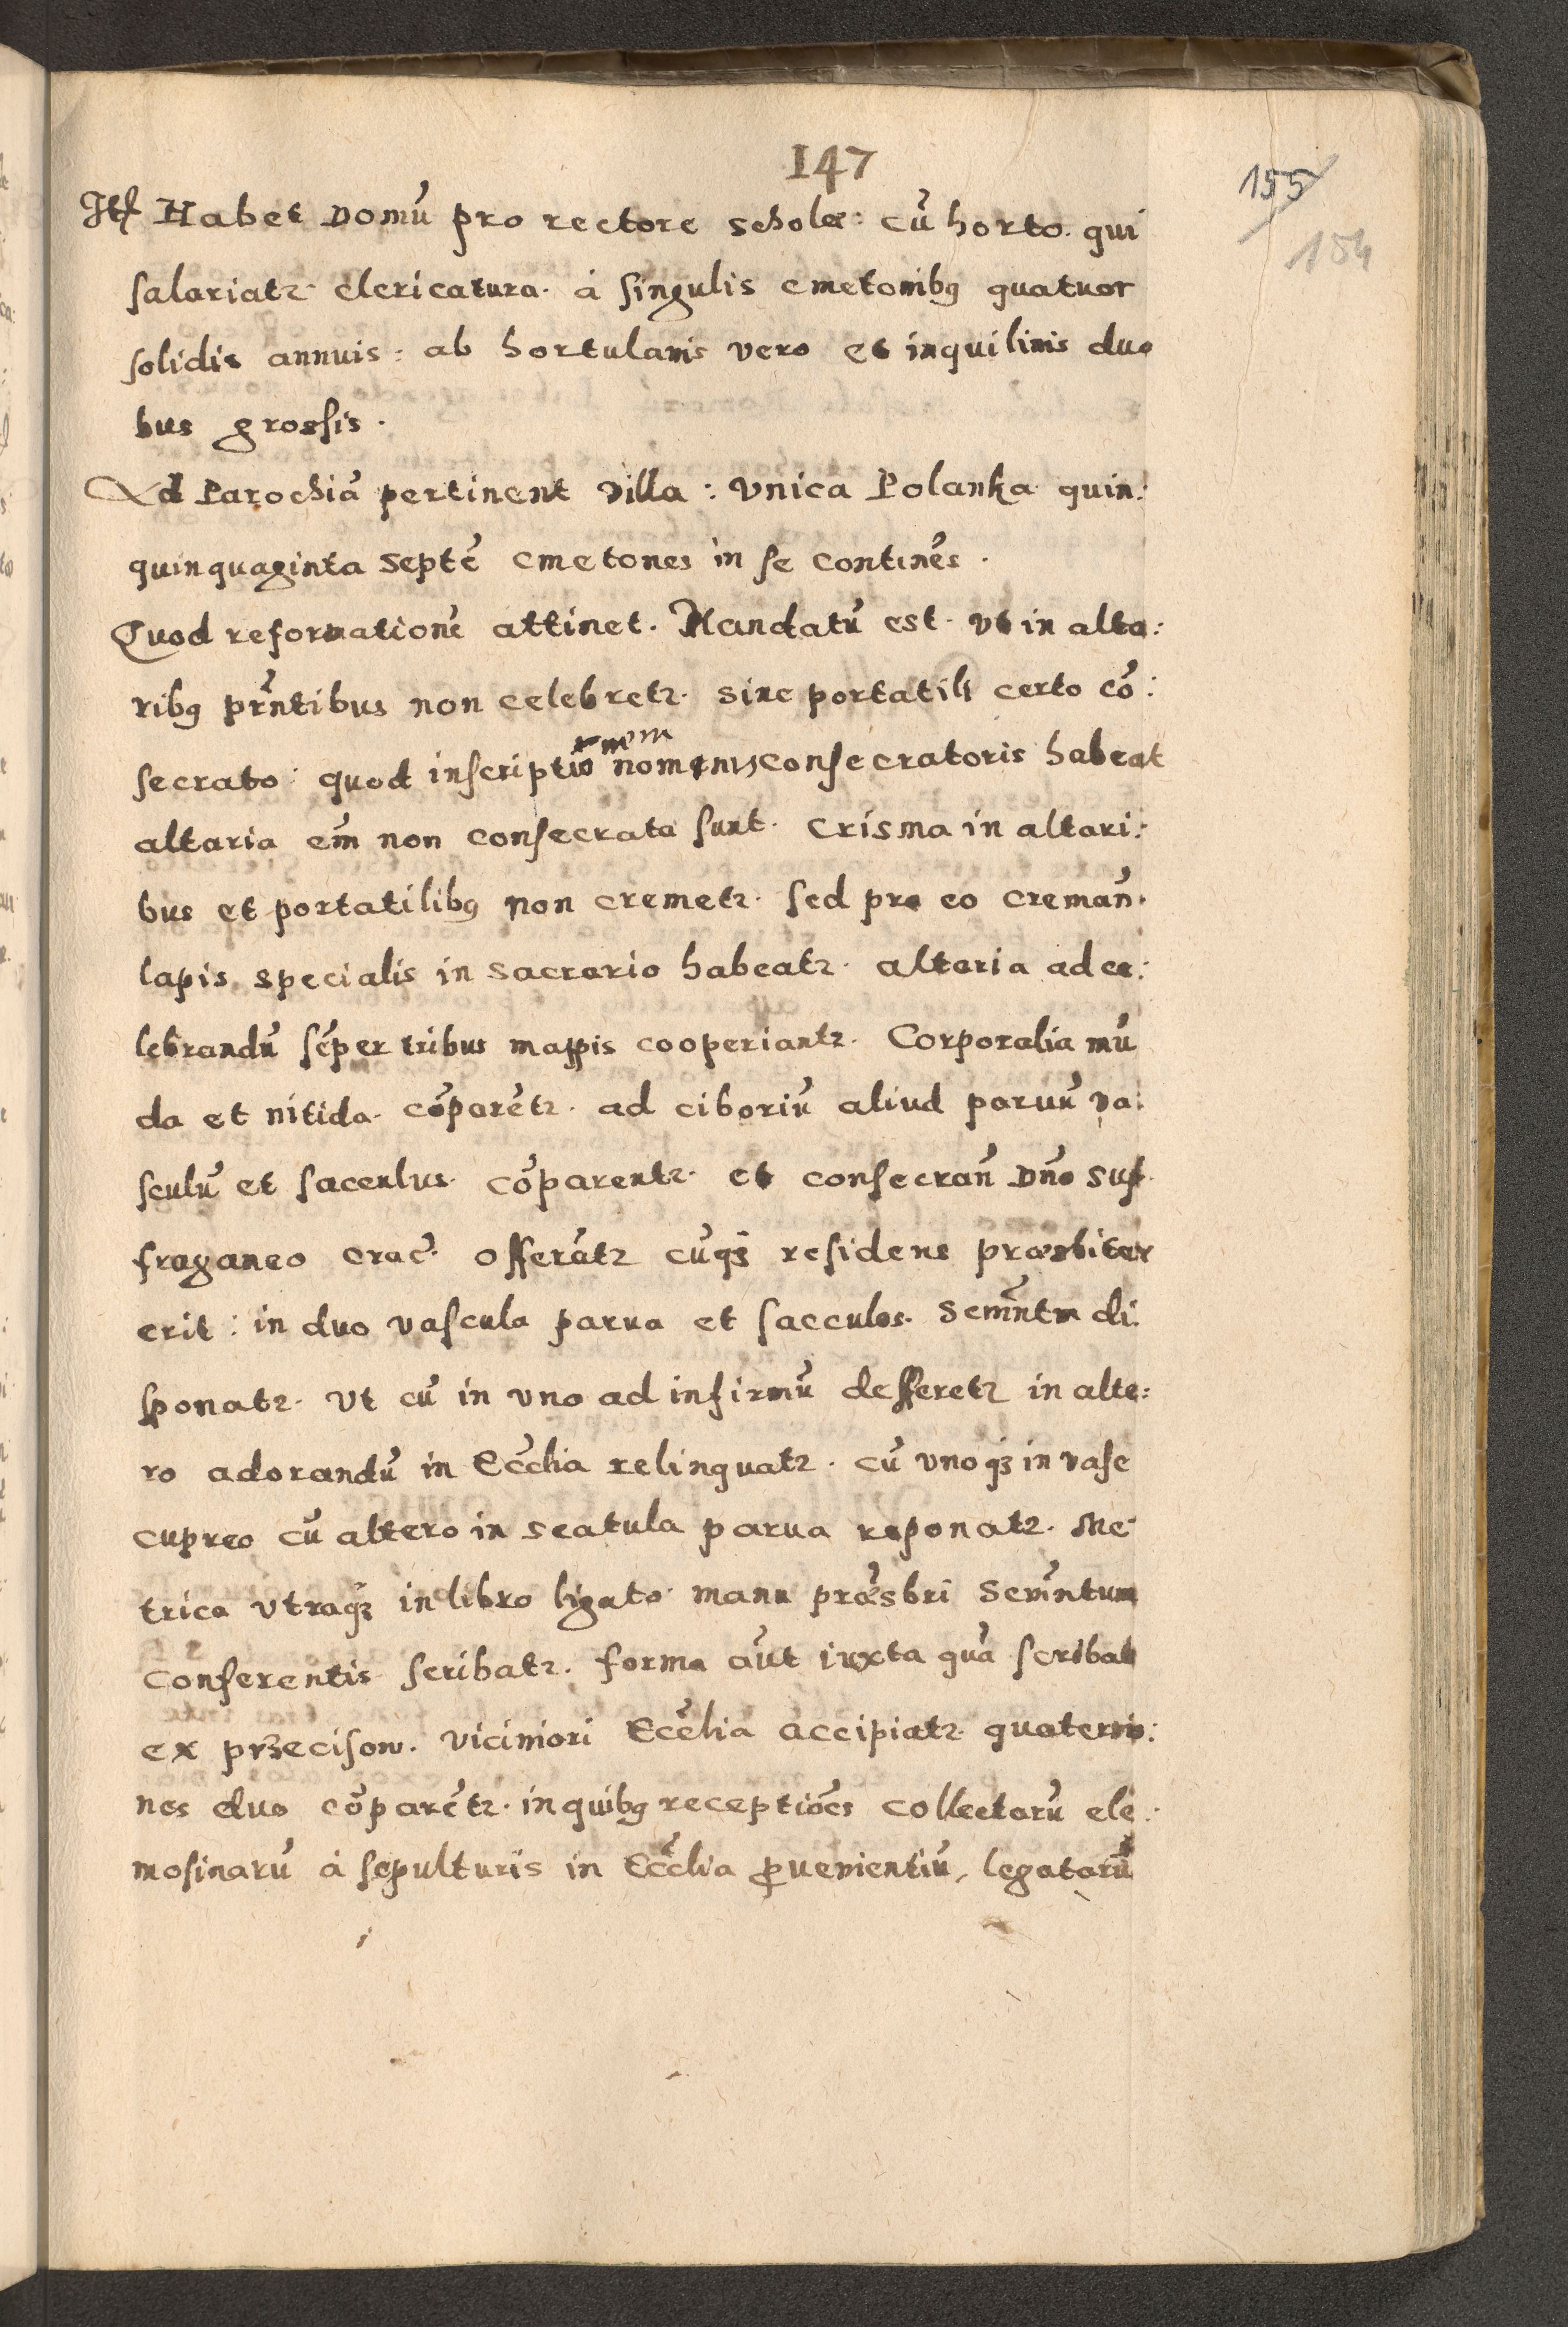 147
155
154
Itē Habet Domū pro rectore scholæ: cū horto. qui
salariatꝛ clericatura. à singulis cmetonibꝰ quatuor
solidis annuis: ab hortulanis vero et inquilinis duo
bus grossis.
Ad Parochiā pertinent villa: vnica Polanka quin:
quinquaginta septē cmetones in se continēs.
Quod reformationē attinet. Mandatū est. vt in alta:
ribꝰ prn̄tibus non celebretꝛ. sine portatili certo cō:
secrato: quod inscriptio nominis consecratoris habeat
nem
altaria em̄ non consecrata sunt. Crisma in altari:
bus et portatilibꝰ non cremetꝛ. sed pro eo creman̄.
lapis specialis in sacrario habeatꝛ. altaria ad ce:
lebrandū sēper tribus mappis cooperiantꝛ. Corporalia mū
da et nitida. cōparētꝛ. ad ciboriū aliud paruū va:
sculū et sacculus. cōparentꝛ. et consecran̄ Dn̄o suf
fraganeo crac̄. offerātꝛ cūqꝫ residens præsbiter
erit: in duo vascula parua et sacculos. Sem̄ntm di
sponatꝛ. vt cū in vno ad infirmū defferetꝛ in alte:
ro adorandū in Ecc̄lia relinquatꝛ. cū vnoqꝫ in vase
cupreo cū altero in scatula parua reponatꝛ. Me
trica vtraqꝫ in libro ligato manu præsbri Sem̄ntum
conferentis scribatꝛ. forma aūt iuxta quā scribat
ex præcisow. viciniori Ecc̄lia accipiatꝛ quaternio:
nes duo cōparētꝛ. in quibꝰ receptiōes collectarū ele:
mosinarū à sepulturis in Ecc̄lia ꝓuenientiū, legatorū